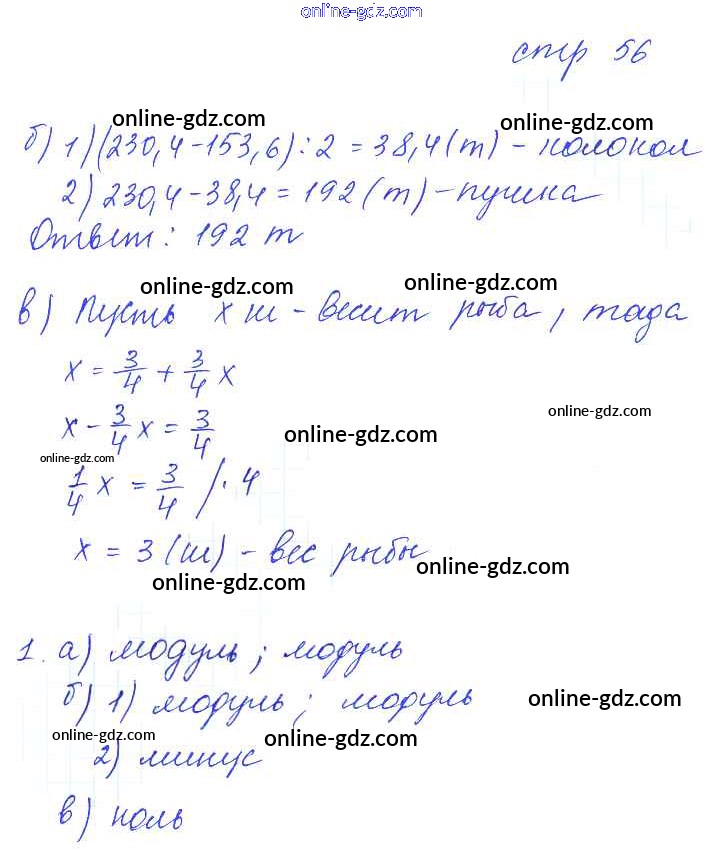 online-gdz.com
стр 56
online-gdz.com online-gdz.com
б) 1) (230,4-153,6):2 = 38,4(т) - колокол
2) 230,4-38,4 = 192 (т) - пушка
Ответ: 192 т
online-gdz.com online-gdz.com
в) Пусть x ш - весит рыба, тада
x = 3/4 + 3/4 x
online-gdz.com
x - 3/4 x = 3/4
online-gdz.com
online-gdz.com
1/4 x = 3/4 /· 4
x = 3 (ш) - вес рыбы
online-gdz.com online-gdz.com
1. а) модуль; модуль
б) 1) модуль; модуль
online-gdz.com
online-gdz.com online-gdz.com
2) минус
в) ноль